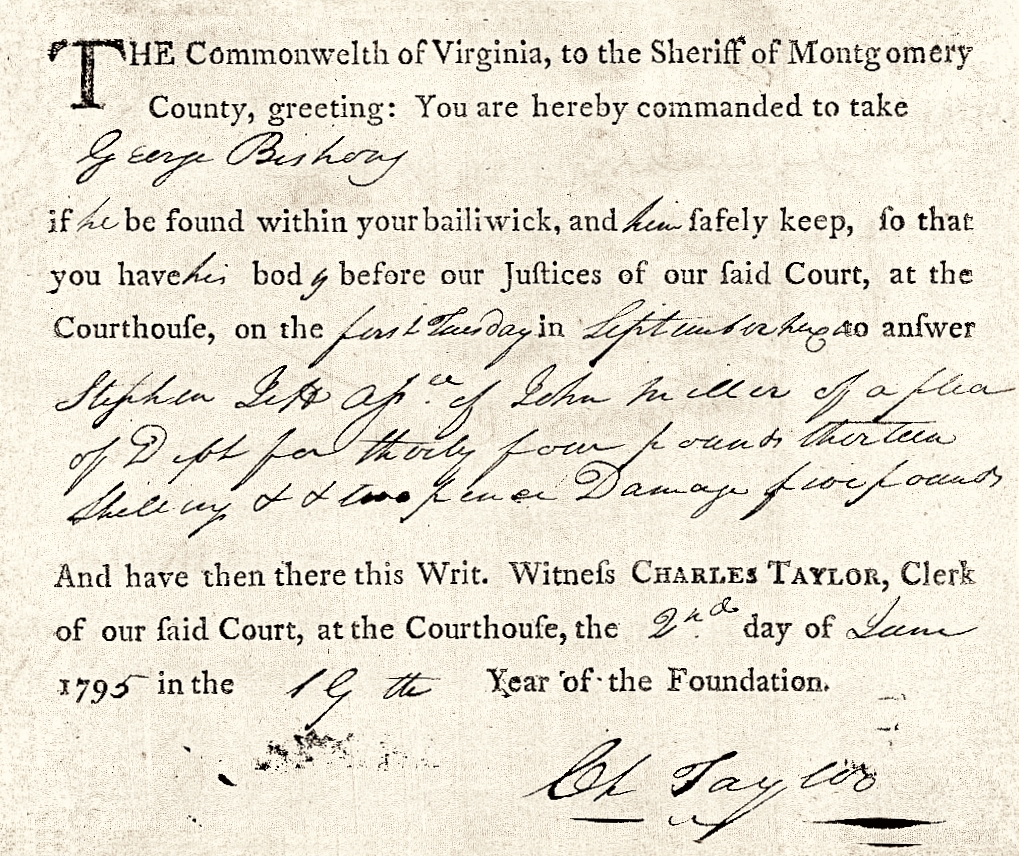 THE Commonwelth of Virginia, to the Sheriff of Montgomery
County, greeting: You are hereby commanded to take
George Bishong
if he be found within your bailiwick, and him ſafely keep, ſo that
you have his body before our Juſtices of our ſaid Court, at the
Courthouſe, on the first Tuesday in September next to anſwer
Stephen aſsee of John Miller of a plea
of Debt for thirty four pounds thirteen
Shillings & two pence Damage five pounds
And have then there this Writ. Witneſs CHARLES TAYLOR, Clerk
of our ſaid Court, at the Courthouſe, the 2nd day of June
1795 in the 19th Year of the Foundation.
Ch Taylor